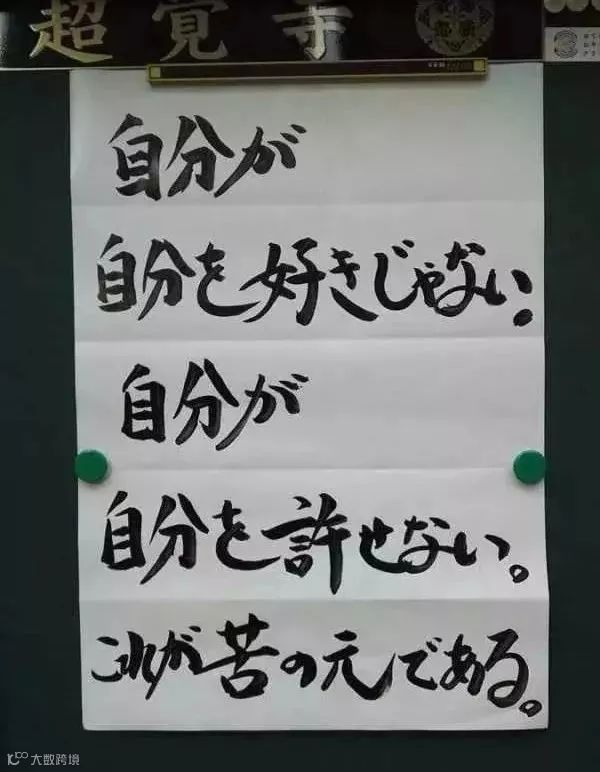 超覚寺
自分が
自分を好きじゃない。
自分が
自分を許せない。
これが苦の元である。
大数跨境